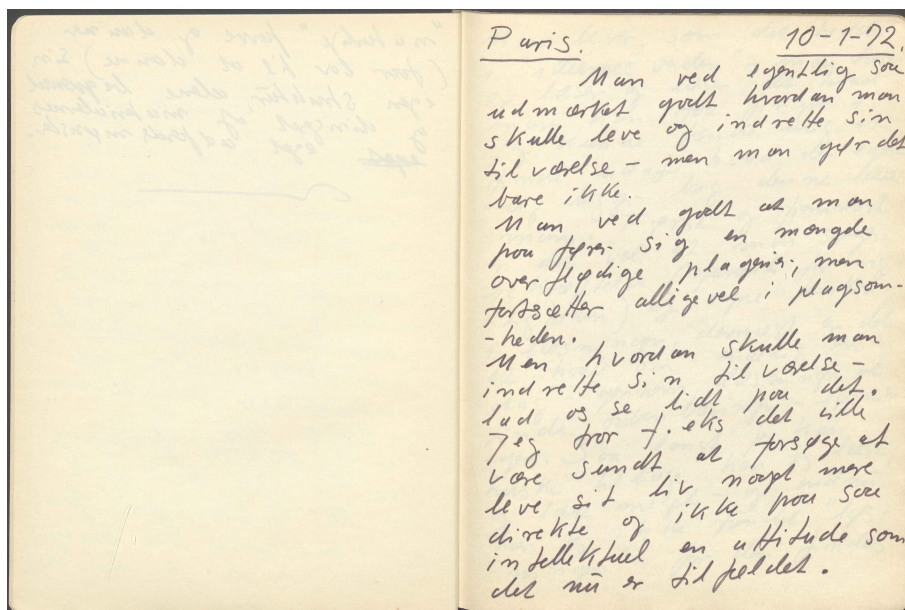 Paris. 10-1-72.
Man ved egentlig saa
udmærket godt hvordan man
skulle leve og indrette sin
tilværelse – men man gør det
bare ikke.
Man ved godt at man
paa fører sig en mængde
overflødige plagerier, men
fortsætter alligevel i plagsom-
-heden.
Men hvordan skulle man
indrette sin tilværelse –
lad os se lidt paa det.
Jeg tror f. eks det ville
være sundt at forsøge at
leve sit liv noget mere
direkte og ikke paa saa
intellektuel en attitude som
det nu er tilfeldet.